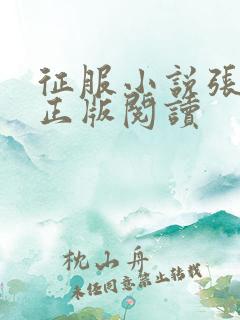 征服小説張
正版閱讀
枕山舟
未经同意禁止转载